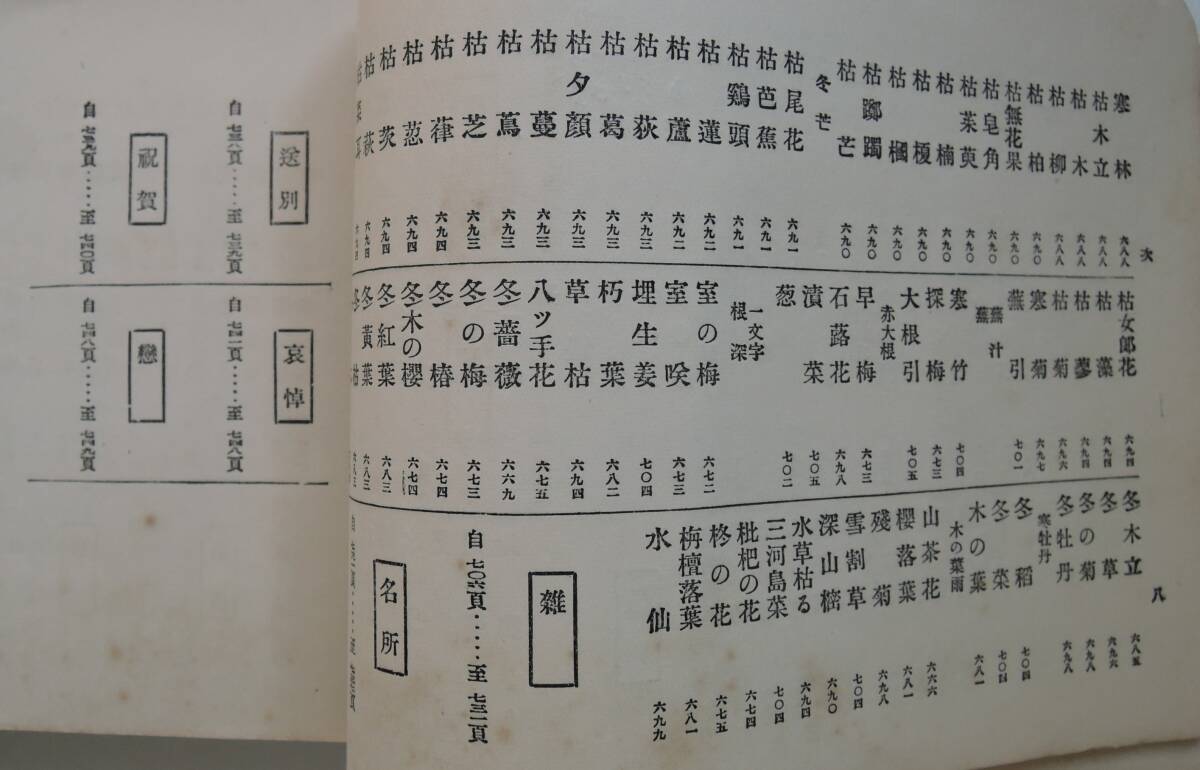 次
寒林 六八八
枯木立 六八八
枯木 六八八
枯柳 六八八
枯柏 六九〇
枯無花果 六九〇
枯皂角 六九〇
枯茱萸 六九〇
枯楠 六九〇
枯榎 六九〇
枯 六九〇
枯躑躅 六九〇
枯芒 六九〇
冬芒
枯尾花 六九一
枯芭蕉 六九一
枯鷄頭 六九一
枯蓮 六九二
枯蘆 六九二
枯荻 六九三
枯葛 六九三
枯夕顔 六九三
枯蔓 六九三
枯蔦 六九三
枯芝 六九三
枯葎 六九四
枯葱 六九四
枯茨 六九四
枯萩 六九四
枯女郎花 六九四
枯藻 六九四
枯蓼 六九四
枯菊 六九六
寒菊 六九七
蕪引 七〇一
蕪汁
蕪
寒竹 七〇四
探梅 六七三
大根引 七〇五
赤大根
早梅 六七三
石蕗花 六九八
漬菜 七〇五
葱 七〇二
一文字
根深
室の梅 六七二
室咲 六七三
埋生姜 七〇四
朽葉 六八二
草枯 六九四
八ツ手花 六七五
冬薔薇 六六九
冬の梅 六七三
冬椿 六七四
冬木の櫻 六七四
冬紅葉 六八三
冬黃葉 六八三
八
冬木立 六八五
冬草 六九六
冬の菊 六九八
冬牡丹 六九八
寒牡丹
冬稻 七〇四
冬菜 七〇四
木の葉 六八一
木の葉雨
山茶花 六六六
櫻落葉 六八一
殘菊 六九八
雪割草 七〇四
深山樒 六九〇
水草枯る 六九四
三河島菜 七〇四
枇杷の花 六七四
柊の花 六七五
栴檀落葉 六八一
水仙 六九九
雜
自 七〇六頁‥‥至 七三二頁
名所
送別
自 七三六頁‥‥‥至 七三九頁
祝賀
自 七三九頁‥‥‥至 七四〇頁
哀悼
自 七四一頁‥‥‥至 七四八頁
戀
自 七四八頁‥‥‥至 七四九頁